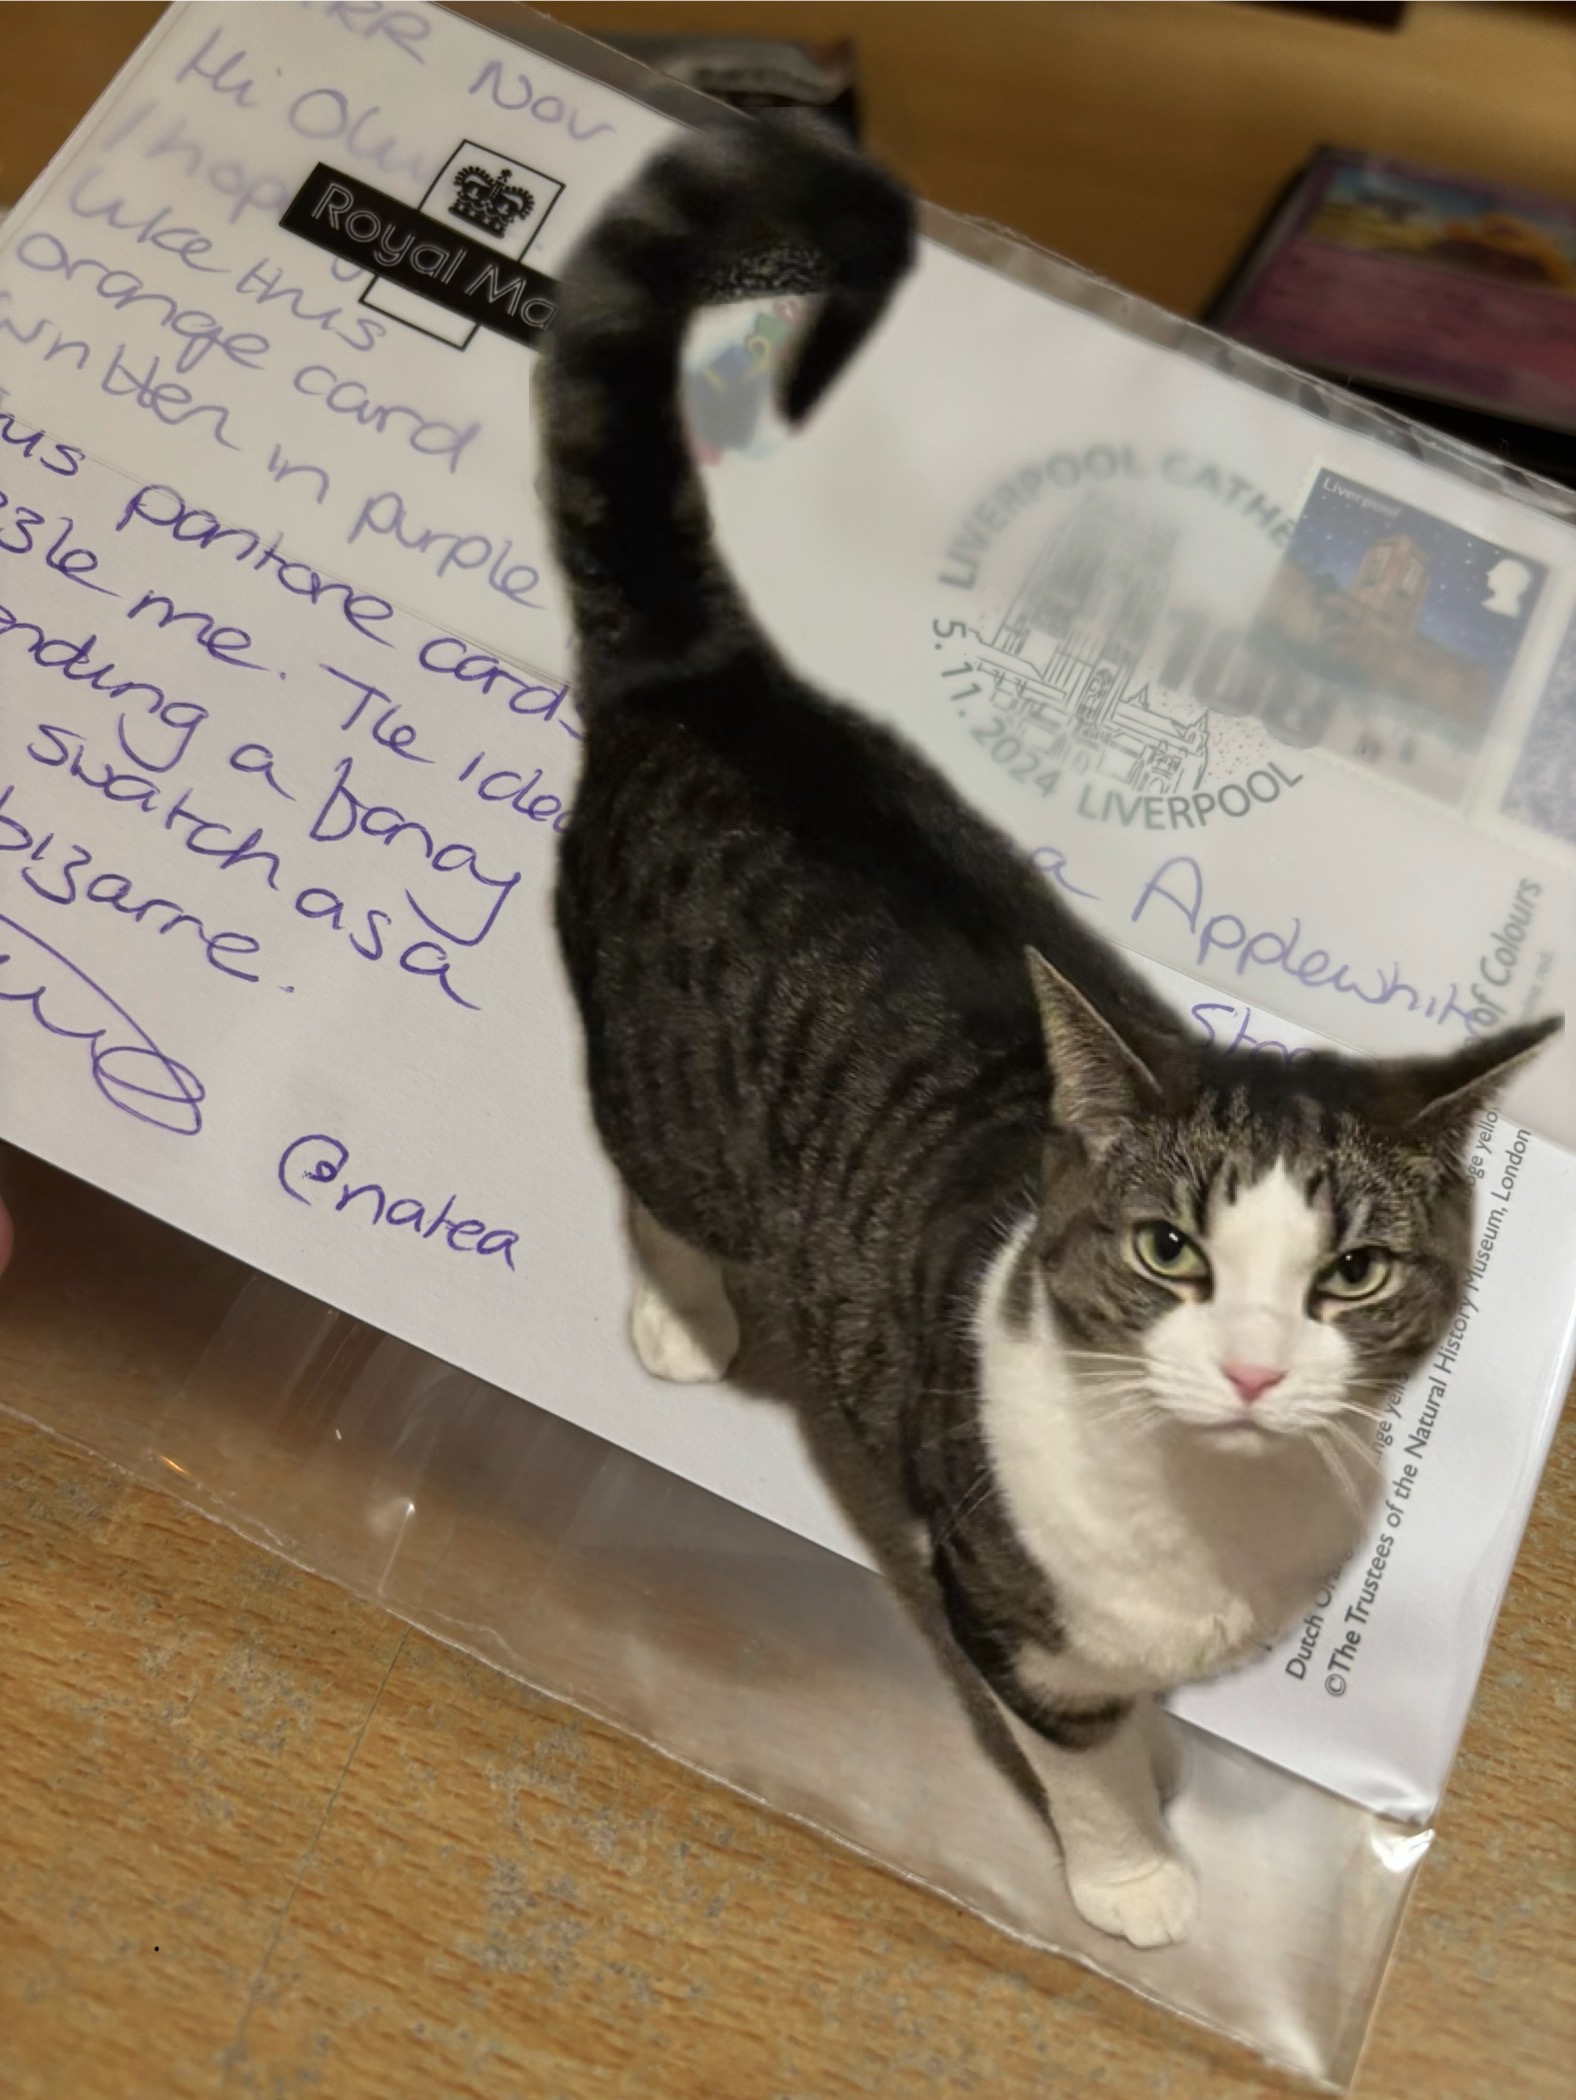 RR Nov
Hi
I hop
like this
orange card
written in purple
pantone cards
me. The idea
a boray
swatch as a
bizarre.
@natea
Royal Ma
LIVERPOOL CATHE
5.11.2024 LIVERPOOL
Liverpool
a Applewhite
of Colours
Dutch
©The Trustees of the Natural History Museum, London